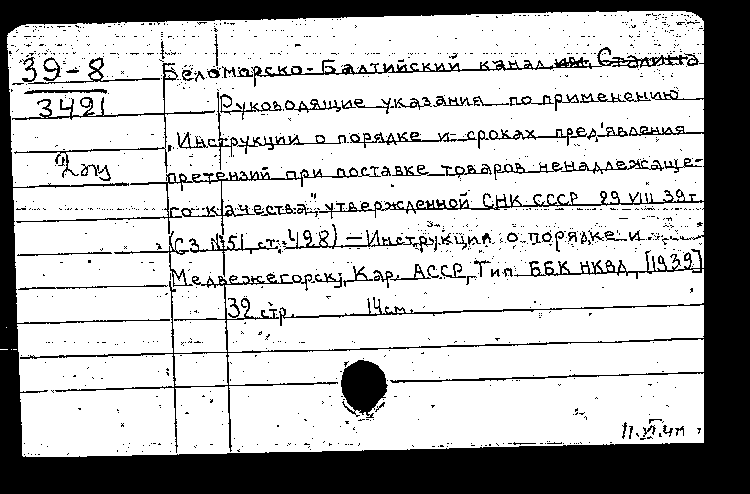 39-8
3421
Беломорско-Балтийский канал им. Сталина
Руководящие указания по применению
„Инструкции о порядке и сроках пред'явления
претензий при поставке товаров ненадлежаще-
го качества", утвержденной СНК СССР 29 VIII 39 г.
(СЗ №51, ст. 498) — Инструкция о порядке и .....
Медвежегорск, Кар. АССР, Тип. ББК НКВД, [1939]
32 стр. 14 см.